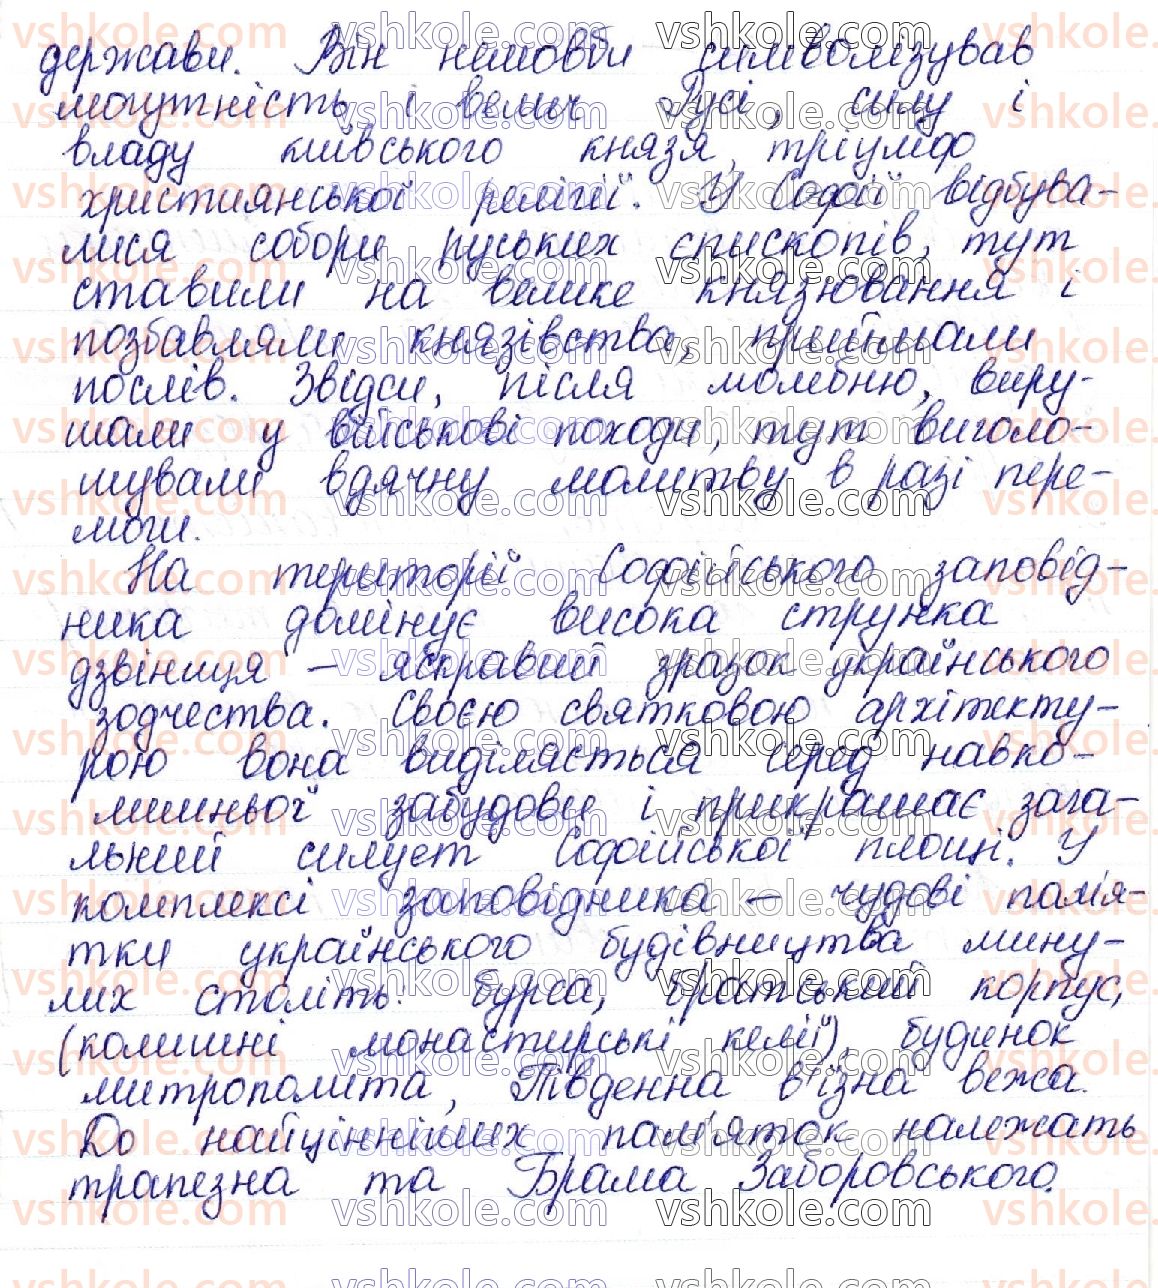 держави. Він немовби символізував
могутність і велич Русі, силу і
владу київського князя, тріумф
християнської релігії. У Софії відбува-
лися собори руських єпископів, тут
ставили на велике князювання і
позбавляли князівства, приймали
послів. Звідси, після молебню, виру-
шали у військові походи, тут виголо-
шували вдячну молитву в разі пере-
моги.
На території Софійського заповід-
ника домінує висока струнка
дзвіниця — яскравий зразок українського
зодчества. Своєю святковою архітекту-
рою вона виділяється серед навко-
лишньої забудови і прикрашає зага-
льний силует Софійської площі. У
комплексі заповідника — чудові пам'я-
тки українського будівництва мину-
лих століть: бурса, братський корпус,
(колишні монастирські келії), будинок
митрополита, Південна в'їзна вежа.
До найцінніших пам'яток належать
трапезна та Брама Заборовського.